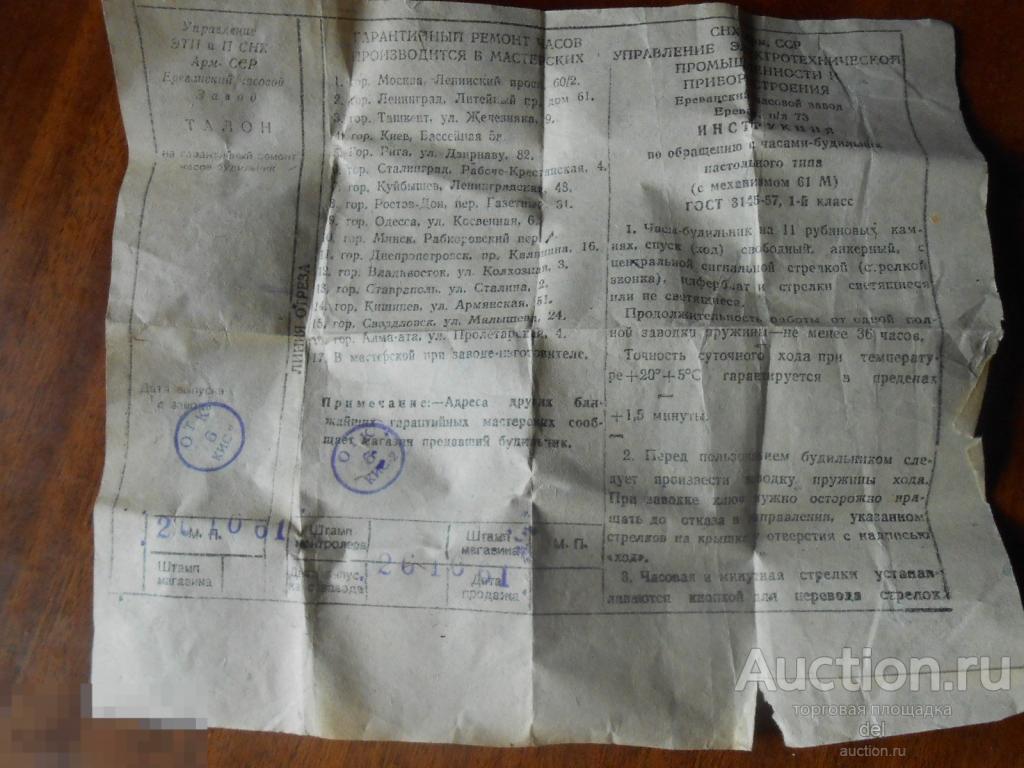 Управление
ЭТП и П СНХ
Арм. ССР
Ереванский часовой
Завод
ТАЛОН
на гарантийный ремонт
часов будильник
Дата выпуска
с завода
ОТК
6
КИС-2
26 10 61
М. П.
Штамп
магазина
ЛИНИЯ ОТРЕЗА
ГАРАНТИЙНЫЙ РЕМОНТ ЧАСОВ
ПРОИЗВОДИТСЯ В МАСТЕРСКИХ
1. гор. Москва, Ленинский просп. 60/2.
2. гор. Ленинград, Литейный пр. дом 61.
3. гор. Ташкент, ул. Железняка, 9.
4. гор. Киев, Бассейная 5
5. гор. Рига, ул. Дзирнаву, 82.
6. гор. Сталинград, Рабоче-Крестьянская, 4.
7. гор. Куйбышев, Ленинградская, 48.
8. гор. Ростов-Дон, пер. Газетный, 31.
9. гор. Одесса, ул. Косвенная, 6
10. гор. Минск, Рабкоровский пер.
11. гор. Днепропетровск, пр. Калинина, 16.
12. гор. Владивосток, ул. Колхозная, 3.
13. гор. Ставраполь, ул. Сталина, 2.
14. гор. Кишинев, ул. Армянская, 51.
15. гор. Свердловск, ул. Малышева, 24.
16. гор. Алма-ата, ул. Пролетарская, 4.
17. В мастерской при заводе-изготовителе.
Примечание:—Адреса других бли-
жайших гарантийных мастерских сооб-
щает магазин продавший будильник.
ОТК
6
КИС-2
Штамп
контролера
Штамп
магазина
М. П.
Дата выпус.
завода
26 10 61
Дата
продажа
СНХ Арм. ССР
УПРАВЛЕНИЕ ЭЛЕКТРОТЕХНИЧЕСКОЙ
ПРОМЫШЛЕННОСТИ И
ПРИБОРОСТРОЕНИЯ
Ереванский часовой завод
Ереван, п/я 73
ИНСТРУКЦИЯ
по обращению с часами-будильник
настольного типа
(с механизмом 61 М)
ГОСТ 3145-57, 1-й класс
1. Часы-будильник на 11 рубиновых кам-
нях, спуск (ход) свободный, анкерный, с
центральной сигнальной стрелкой (стрелкой
звонка), циферблат и стрелки светящиеся
или не светящиеся.
Продолжительность работы от одной пол-
ной заводки пружины—не менее 36 часов.
Точность суточного хода при температу-
ре +20°±5°C гарантируется в пределах
±1,5 минуты.
2. Перед пользованием будильником сле-
дует произвести заводку пружины хода.
При заводке ключ нужно осторожно вра-
щать до отказа в направлении, указанном
стрелкой на крышке отверстия с надписью
«ход».
3. Часовая и минутная стрелки устанав-
ливаются кнопкой для перевода стрелок
Auction.ru
торговая площадка
del
auction.ru